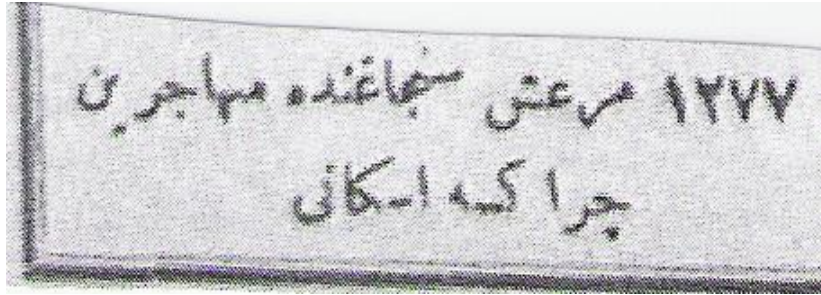 ١٢٧٧ مرعش سنجاغنده مهاجرين
چراكسه اسكانی